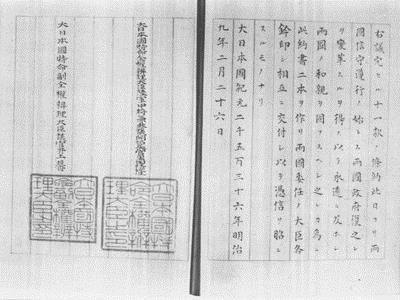 右議定セル十一款ノ條約此日ヨリ兩
國信守遵行ノ始トス兩國政府復之レ
ヲ變革スルヿヲ得ス以テ永遠ニ及ホシ
兩國ノ和親ヲ固フスヘシ之レカ爲ニ
此約書二本ヲ作リ兩國委任ノ大臣各
鈐印シ相互ニ交付シ以テ憑信ヲ昭ニ
スルモノナリ
大日本國紀元二千五百三十六年明治
九年二月二十六日
大日本國特命全權辨理大臣陸軍中將兼參議開拓長官黑田清隆
大日本國特命副全權辨理大臣議官井上馨